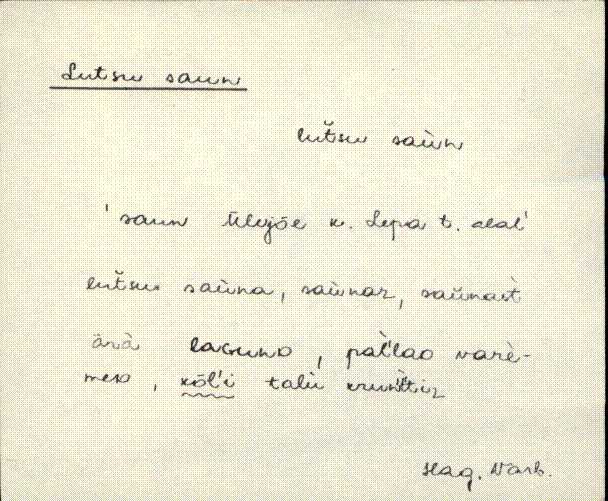 Lutsu saun
lut̆su saùn
'saun Ülejõe k. Lepa t. alal'
lut̆su saùna, saùnaz, saùnast̀
ärà lagunD, pàl'laD varè-
meD, kõl'i talù krun̆tiz
Haq. Varb.